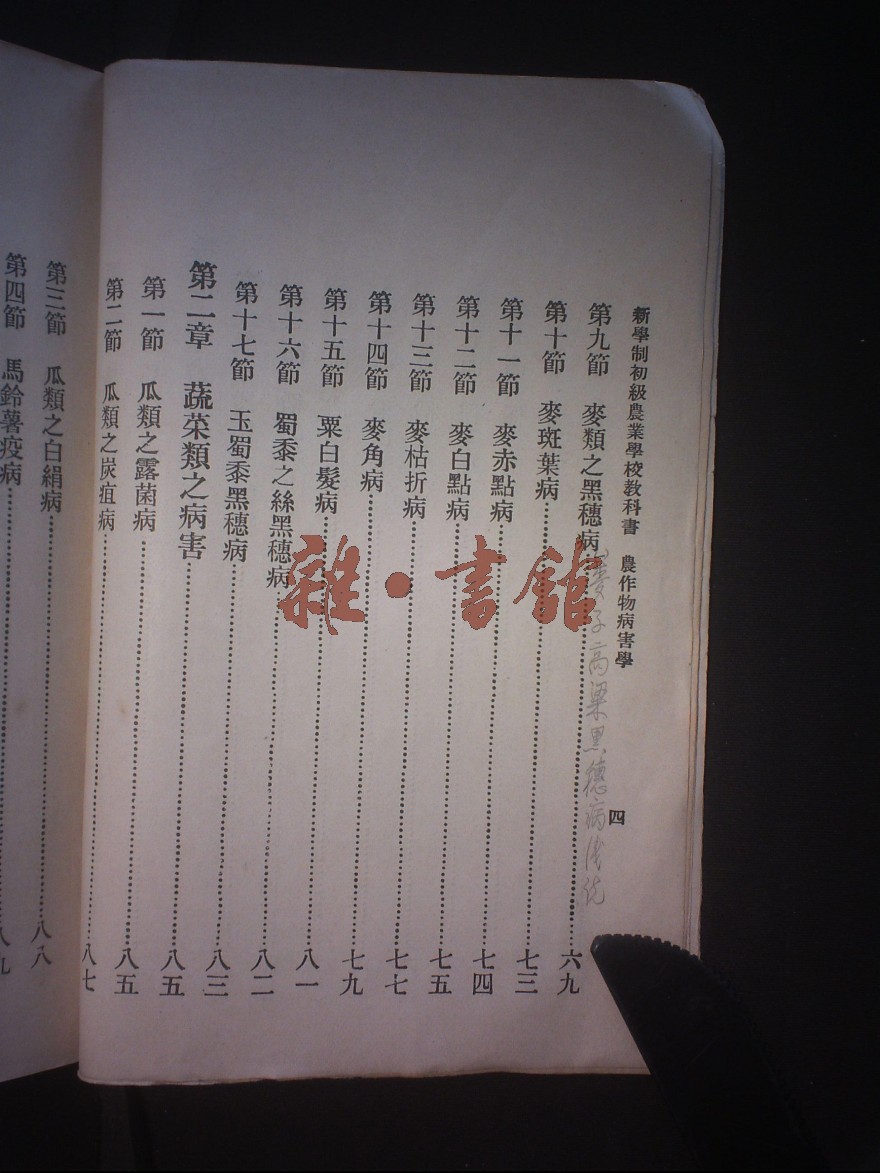 新學制初級農業學校教科書　農作物病害學　四
第九節　麥類之黑穗病……六九
高粱黑穗病
第十節　麥斑葉病……七三
第十一節　麥赤點病……七四
第十二節　麥白點病……七五
第十三節　麥枯折病……七七
第十四節　麥角病……七九
第十五節　粟白髮病……八一
第十六節　蜀黍之絲黑穗病……八二
第十七節　玉蜀黍黑穗病……八三
第二章　蔬菜類之病害……八五
第一節　瓜類之露菌病……八五
第二節　瓜類之炭疽病……八七
第三節　瓜類之白絹病……八八
第四節　馬鈴薯疫病……八九
雜·書館